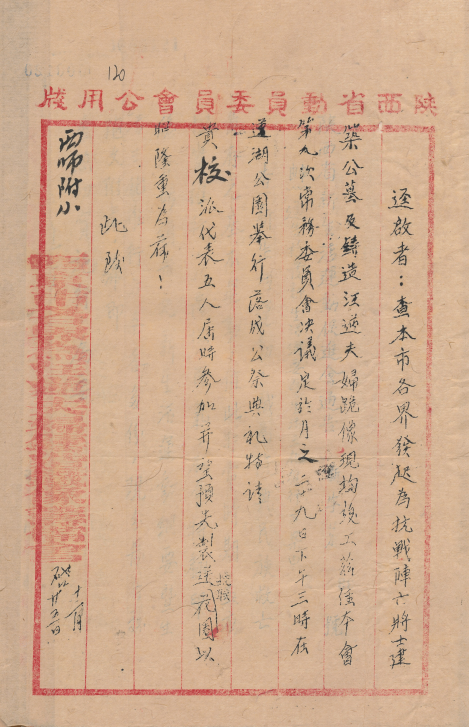 120
陜西省動員委員會公用牋
逕啟者：查本市各界發起為抗戰陣亡將士建
築公墓及鑄造汪逆夫婦跪像現均竣工茲經本會
第九次常務委員會決議定於月之二十九日下午三時在
蓮湖公園舉行落成公祭典礼特請
貴校派代表五人屆時參加并望預先製送花圈以
昭隆重為荷！
此致
西師附小
十一月
廿五日